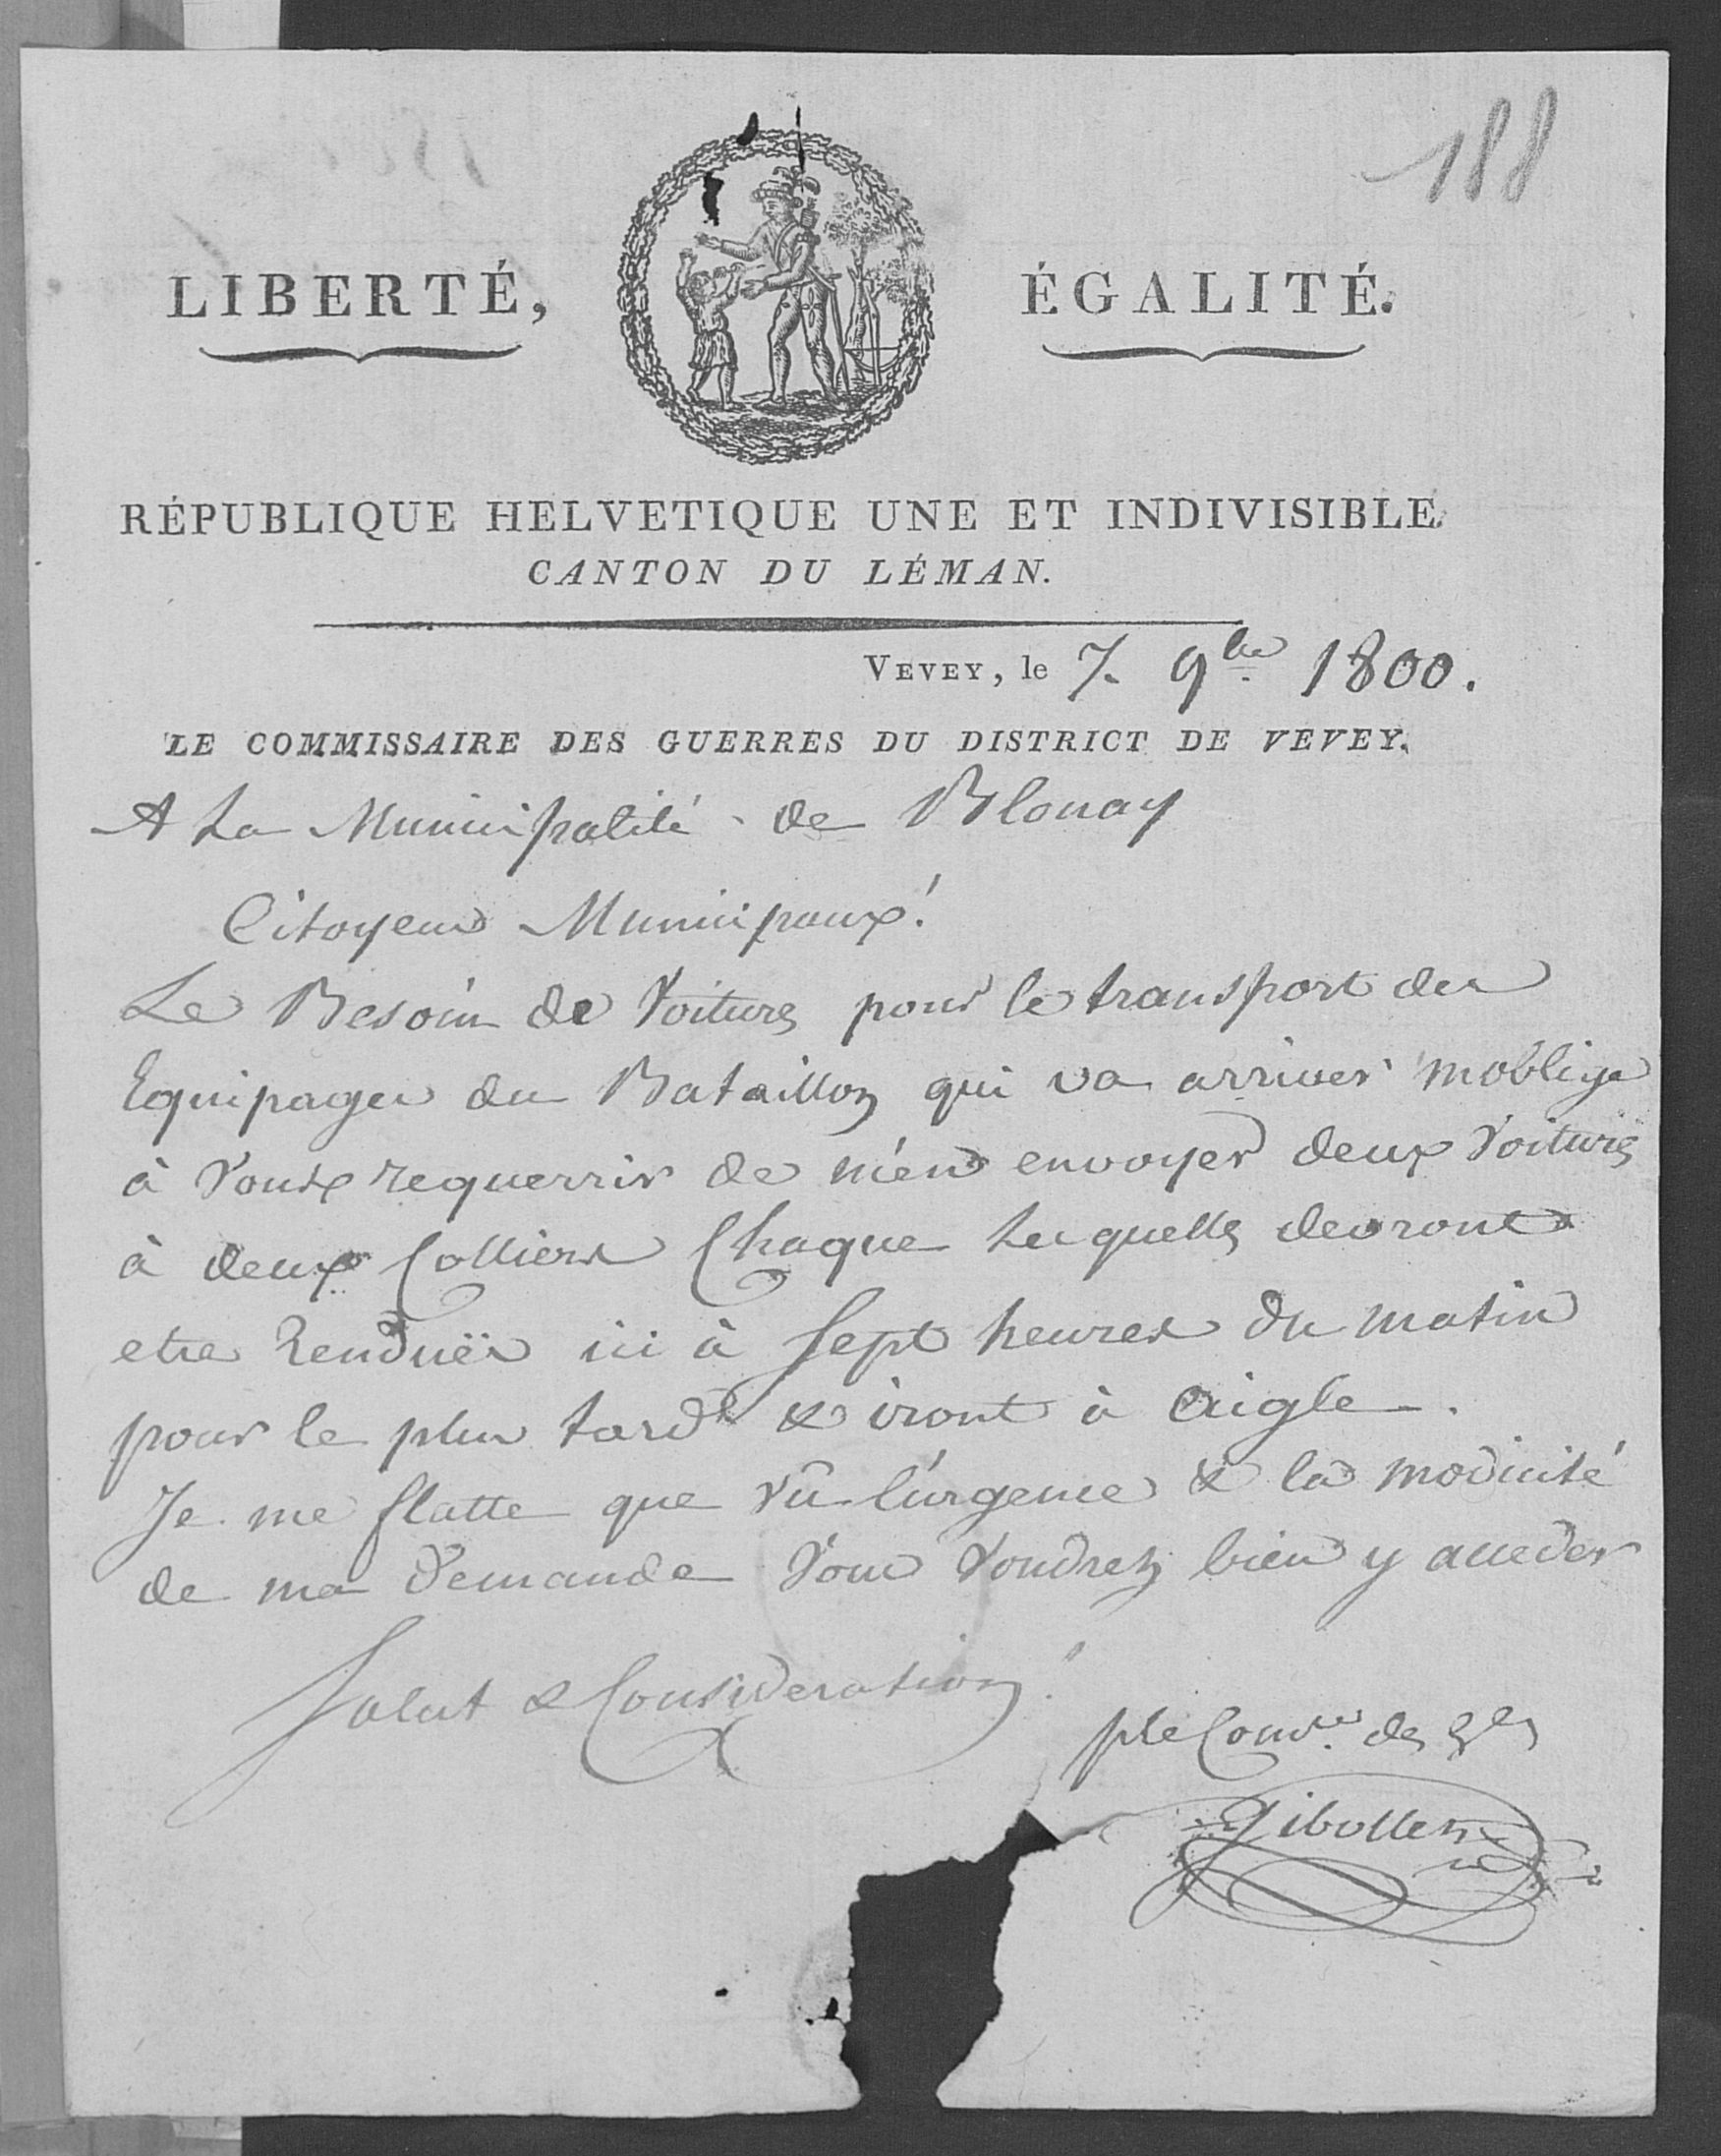 188
LIBERTÉ, ÉGALITÉ.
RÉPUBLIQUE HELVETIQUE UNE ET INDIVISIBLE.
CANTON DU LÉMAN.
VEVEY, le 7. 9bre 1800.
LE COMMISSAIRE DES GUERRES DU DISTRICT DE VEVEY.
A La Municipalité de Blonay
Citoyens Municipaux!
Le Besoin de Voitures pour le transport des
Equipages du Bataillon qui va arriver m'oblige
à Vous requerrir de m'en envoyer deux Voitures
à deux Colliers Chaque Lesquelles devront
etre Renduës ici à Sept heures du matin
pour le plus tard & iront à Aigle.
Je me flatte que Vû l'urgence & la modicité
de ma Demande Vous Voudrez bien y acceder
Salut & Consideration!
ple Comre des Gres
Gibollet